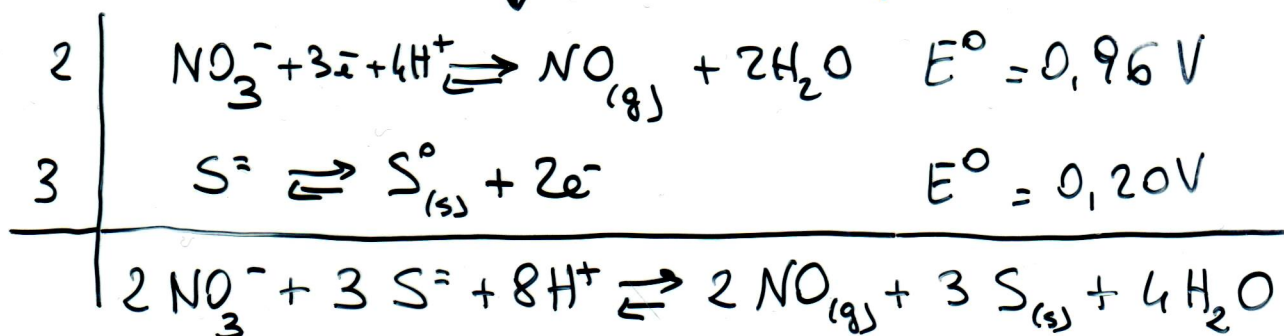 2 NO₃⁻ + 3e⁻ + 4H⁺ ⇌ NO(g) + 2H₂O E⁰ = 0,96 V
3 S⁼ ⇌ S⁰(s) + 2e⁻ E⁰ = 0,20V
2 NO₃⁻ + 3 S⁼ + 8H⁺ ⇌ 2 NO(g) + 3 S(s) + 4 H₂O